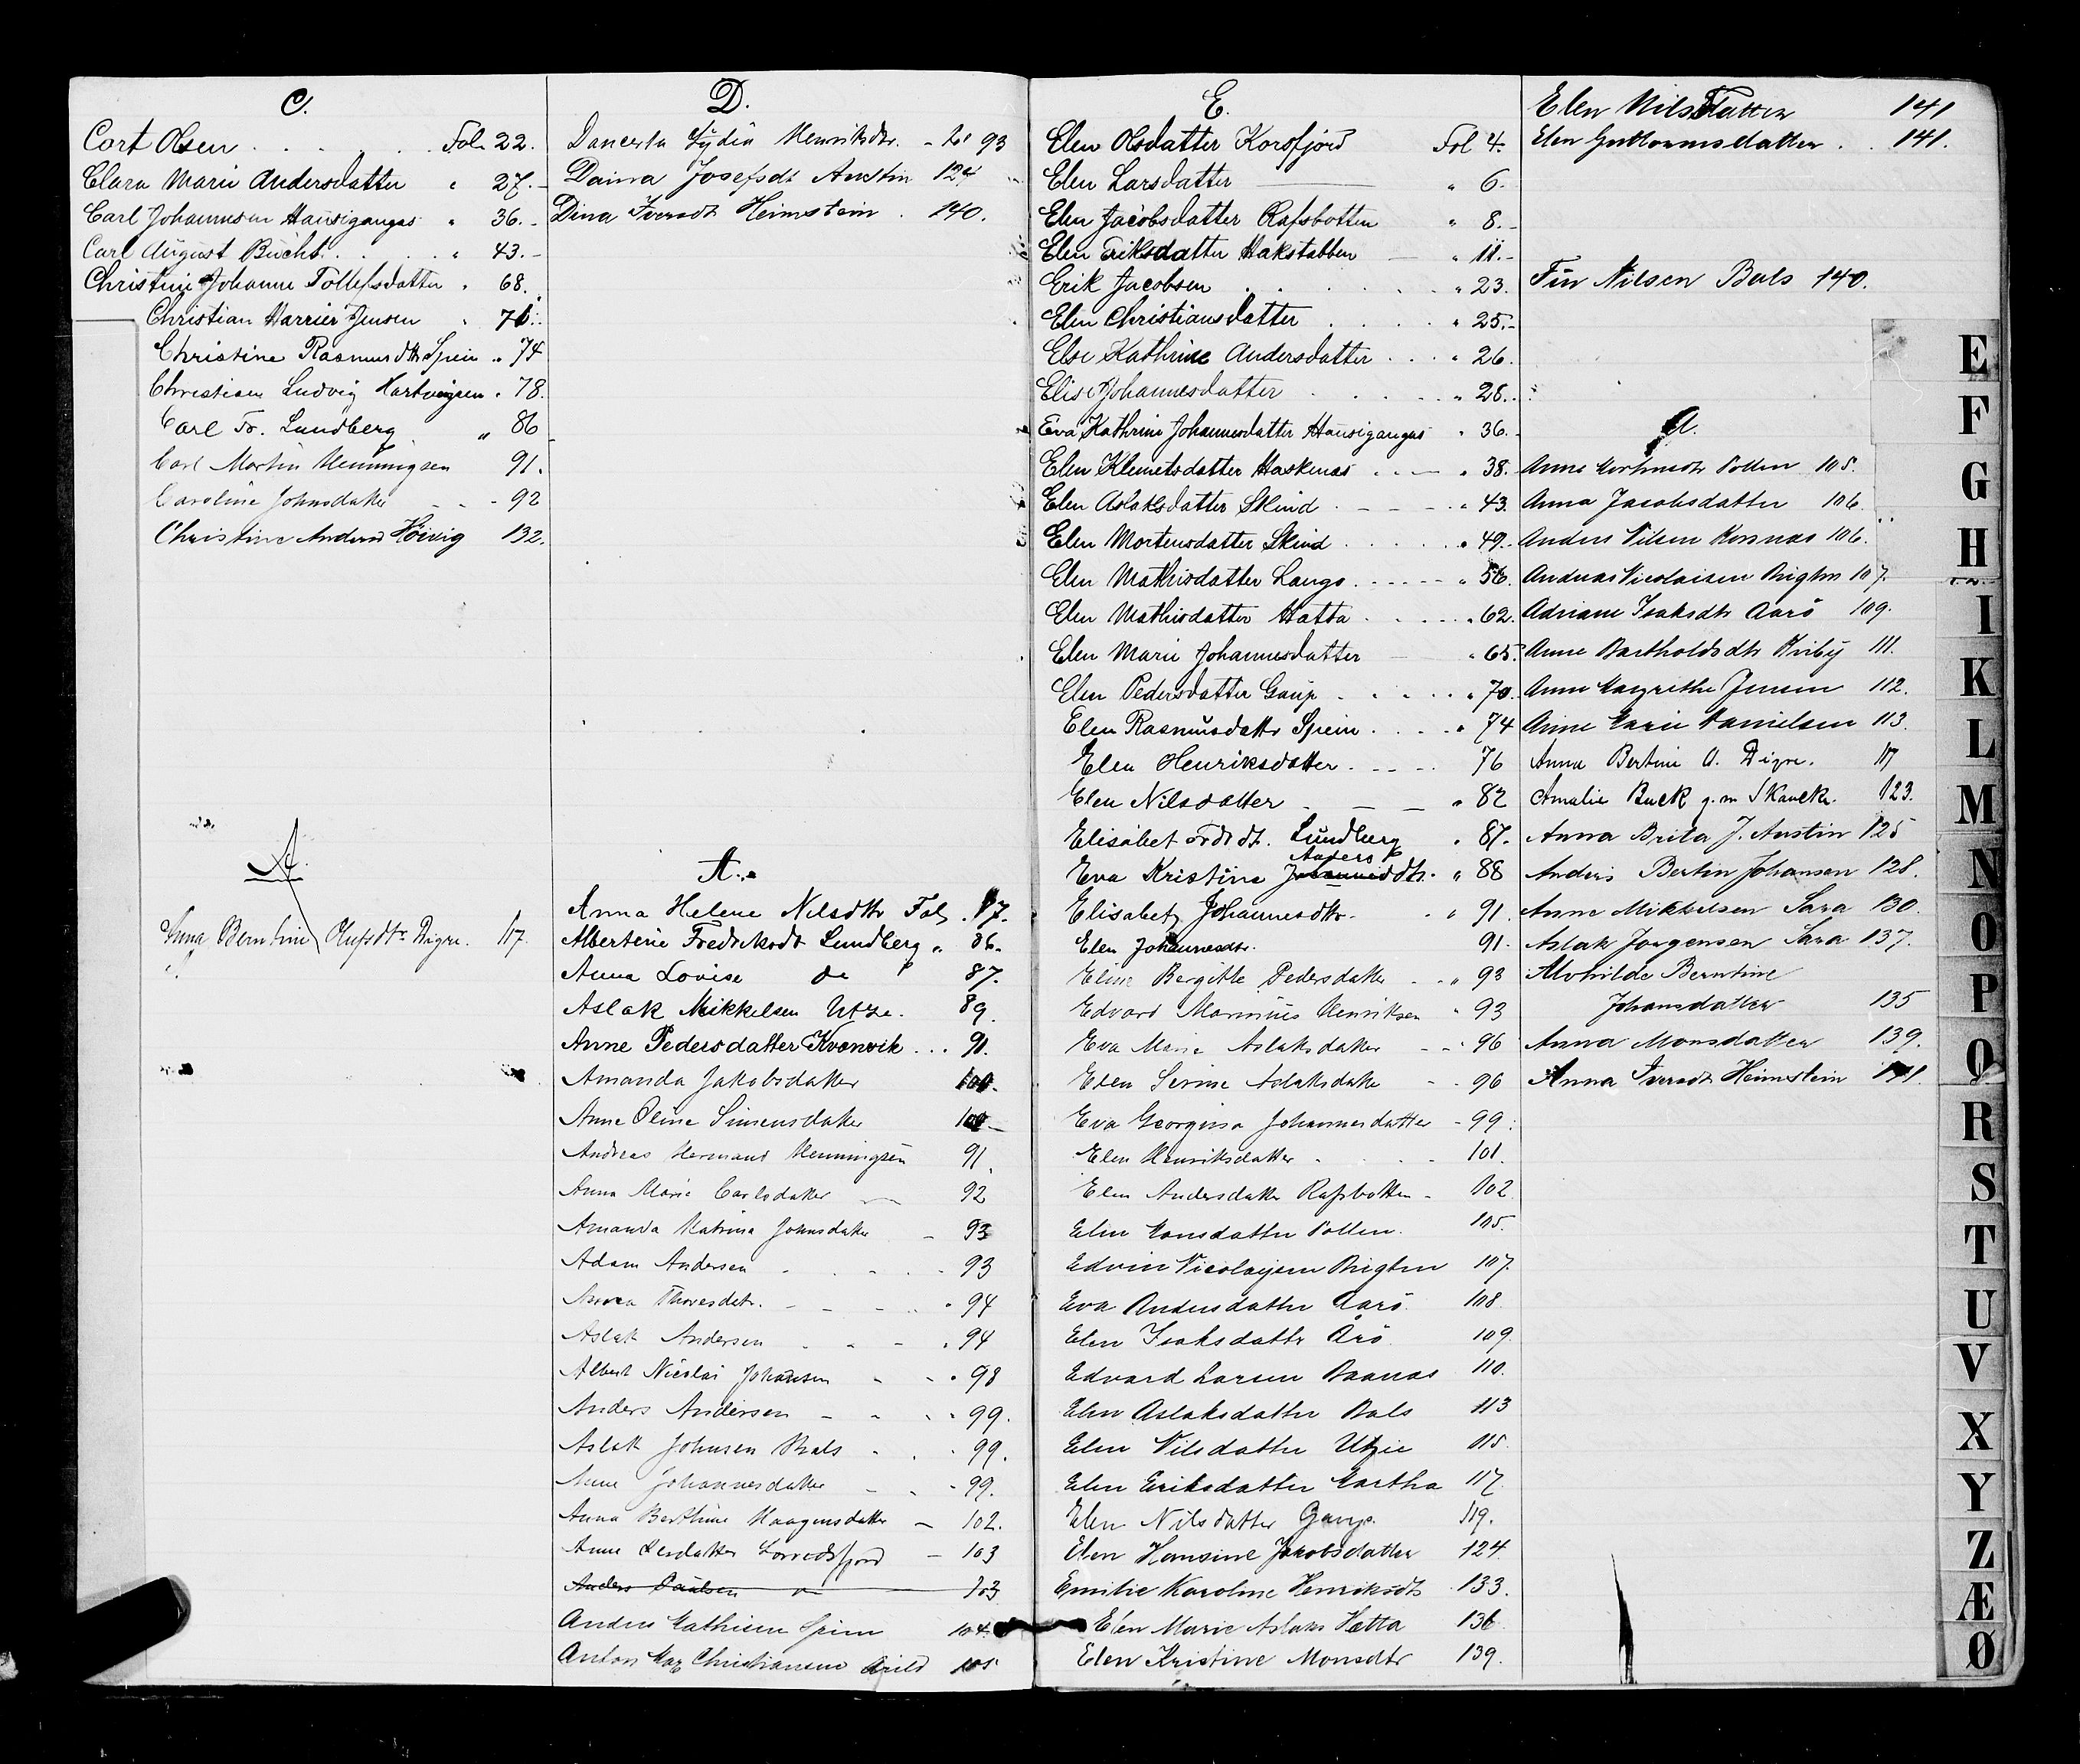 C.
Cort Olsen . . . . . . Fol. 22.
Clara Marie Andersdatter " 27.
Carl Johannesen Hausigangas " 36.
Carl August Bucht . . . . " 43.
Christine Johanne Tollefsdatter " 68.
Christian Harrier Jensen " 71.
Christine Rasmusdtr Spein " 74
Christian Ludvig Hartvigsen " 78.
Carl Fr. Lundberg " 86
Carl Martin Henningsen 91.
Caroline Johnsdatter - - 92
Christine Anders Høivig 132.
A.
Anna Berntine Olufsdtr Digre. 117.
D.
Dancerta Lydia Henriksdtr. - 93
Daina Josefsdt Austin 124
Dina Iversdt Heimstein . 140.
A.
Anna Helene Nilsdtr Fol. 87.
Albertine Fredriksdt Lundberg " 86.
Anna Lovise do " 87.
Aslak Mikkelsen Utze. 89.
Anne Pedersdatter Kvænvik . . . 91.
Amanda Jakobsdatter 100.
Anne Oline Simensdatter 100
Andreas Hermand Henningsen 91.
Anna Marie Carlsdatter 92
Amanda Katrina Johnsdatter - 93
Adam Andersen - - - 93
Anna Thoresdatr. - - - 94
Aslak Andersen - - 94
Albert Nicolai Johansen - - 98
Anders Andersen - - - 99.
Aslak Johnsen Bals - - 99.
Anne Johannesdatter - - 99.
Anna Berthine Haagensdatter - 102.
Anne Persdatter Lerredsfjord - 103
Anders Paulsen " 103
Anders Mathisen Spein 104
Anton Mag Christiansen Arild 105
E.
Elen Olsdatter Korsfjord Fol 4.
Elen Larsdatter " 6.
Elen Jacobsdatter Rafsbotten " 8.
Elen Eriksdatter Hakstabben " 11.
Erik Jacobsen . . . . " 23.
Elen Christiansdatter . . . " 25.
Else Kathrine Andersdatter . . . " 26.
Elise Johannesdatter . . . . " 28.
Eva Kathrine Johannesdatter Hausigangas " 36.
Elen Klemetsdatter Haskenas . . - " 38.
Elen Aslaksdatter Skind . - - - " 43.
Elen Mortensdatter Skind . . . . " 49.
Elen Mathisdatter Lango . - - - - " 56.
Elen Mathisdatter Hatta . . . . " 62.
Elen Marie Johannesdatter " 65.
Elen Pedersdatter Gaup . . . . " 70.
Elen Rasmusdattr Spein . . . . " 74
Elen Henriksdatter . - - - 76
Elen Nilsdatter - - - " 82
Elisabet Frdrdt. Lundberg " 87.
Eva Kristine Johannesdtr. Anders " 88
Elisabet Johannesdtr. " 91.
Elen Johannesdtr. 91.
Eline Bergitte Pedersdatter - " 93
Edvard Marinius Henriksen " 93
Eva Marie Aslaksdatter - - 96
Elen Sirine Aslaksdatter - - 96
Eva Georgina Johannesdatter - 99.
Elen Henriksdatter - - - 101.
Elen Andersdatter Rafsbotten - 102.
Elen Monsdatter Pollen. 105.
Edvin Nicolaysen Brigten 107.
Eva Andersdatter Aarö 108.
Elen Isaksdattr Årö 109.
Edvard Larsen Baanas 110.
Elen Aslaksdatter Bals 113
Elen Nilsdatter Utzie 115.
Elen Eriksdatter Martha 117.
Elen Nilsdatter Gaup. 119.
Elen Hansine Jakobsdatter 124.
Emilie Karoline Henriksdt 133.
Elen Marie Aslaks Hætta 136
Elen Kristine Monsdtr 139.
Elen Nilsdatter 141
Elen Guttormsdatter . . 141.
Fin Nilsen Bals 140.
A.
Anne Mortensdtr Pollen 105.
Anna Jacobsdatter 106.
Anders Nilsen Korsnas 106.
Andreas Nicolaisen Brigten 107.
Adriane Isaksdtr Aarö 109.
Anne Bartholdsdtr Kviby 111.
Anne Margrethe Jensen 112.
Anne Marie Danielsen 113.
Anna Bertine O. Digre. 117
Amalie Buck g. m Skaulk. 123.
Anna Brita J. Austin 125
Anders Bertin Johansen 128.
Anne Mikkelsen Sara 130.
Aslak Jørgensen Sara 137.
Alvhilde Berntine
Johansdatter 135
Anna Monsdatter 139.
Anna Iversdt Heimstein 141.
E
F
G
H
I
K
L
M
N
O
P
Q
R
S
T
U
V
X
Y
Z
Æ
Ø